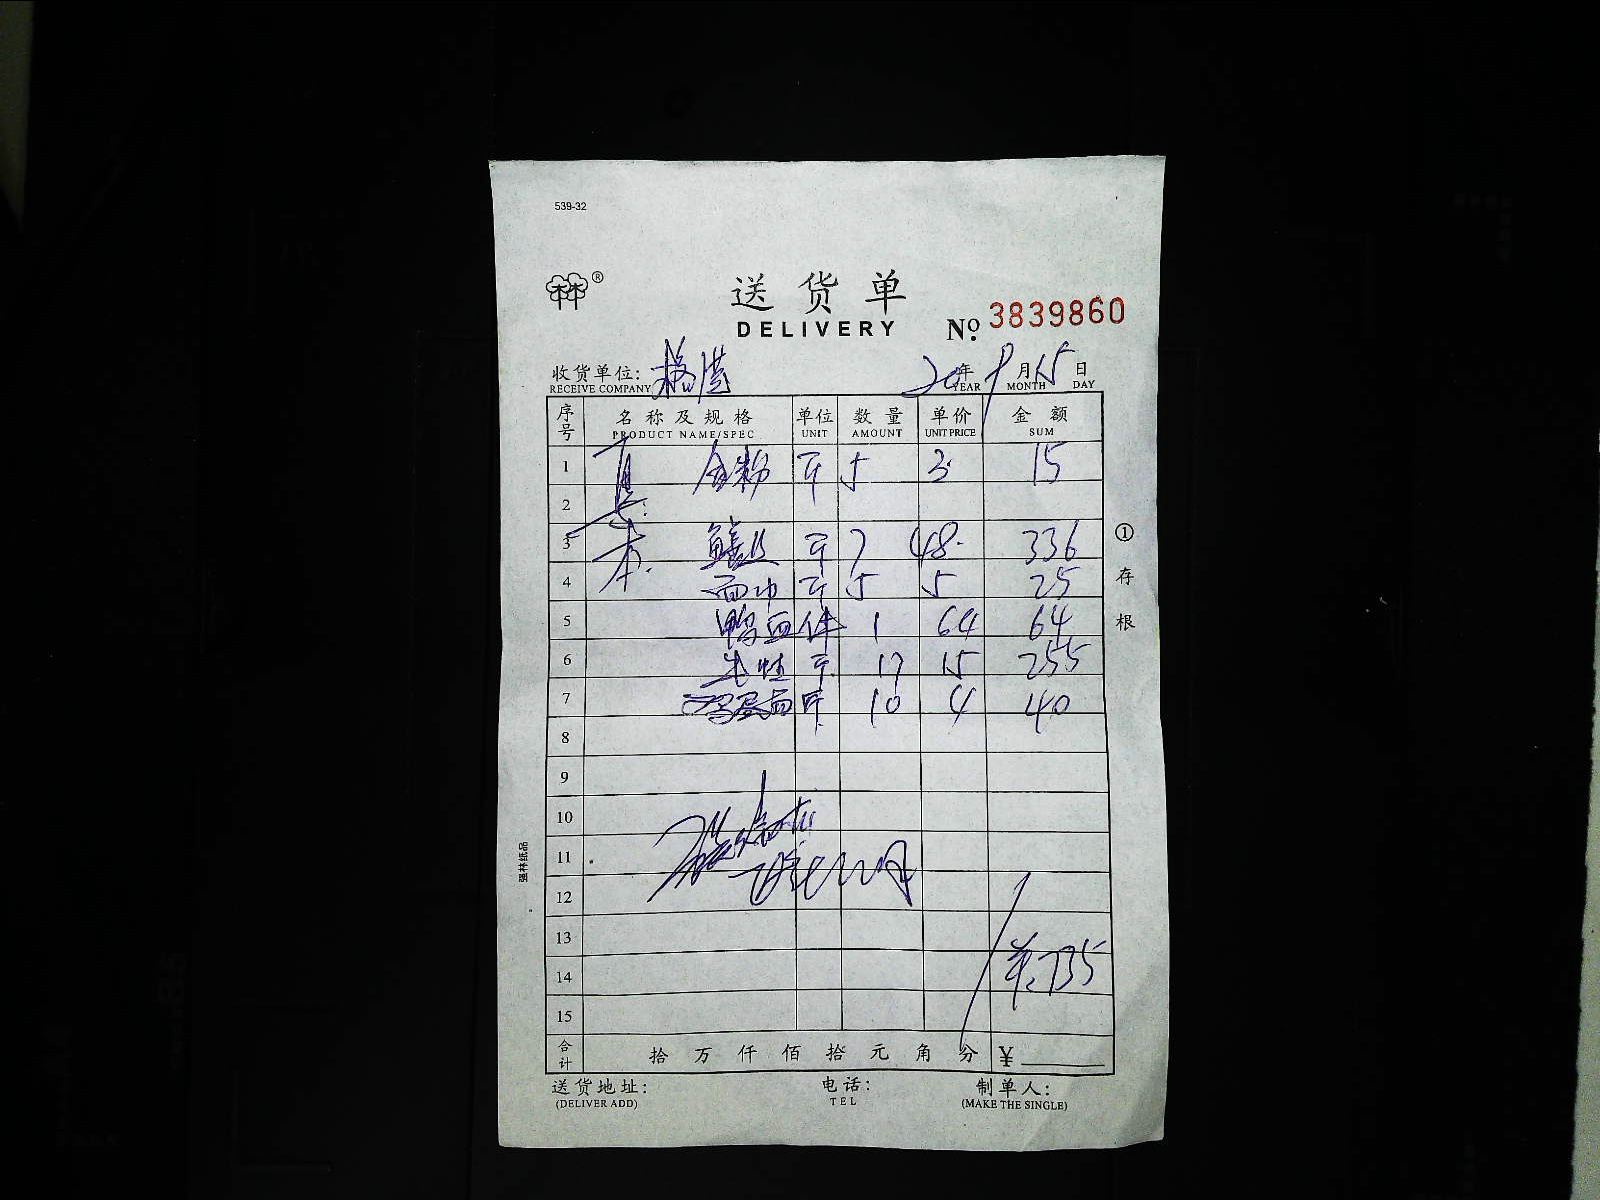 539-32
林®
送货单
DELIVERY
No. 3839860
收货单位: 杨洪 20年 9月15日
RECEIVE COMPANY YEAR MONTH DAY
序号 名称及规格 单位 数量 单价 金额
PRODUCT NAME/SPEC UNIT AMOUNT UNIT PRICE SUM
1 斤 5 3 15
2
3 斤 7 48 336
4 面巾 斤 5 5 25
5 鸭血 件 1 64 64
6 斤 17 15 255
7 斤 10 4 40
8
9
10
11
12
13
14 735
15
合计 拾 万 仟 佰 拾 元 角 分 ¥
送货地址: 电话: 制单人:
(DELIVER ADD) TEL (MAKE THE SINGLE)
①存根
强林纸品